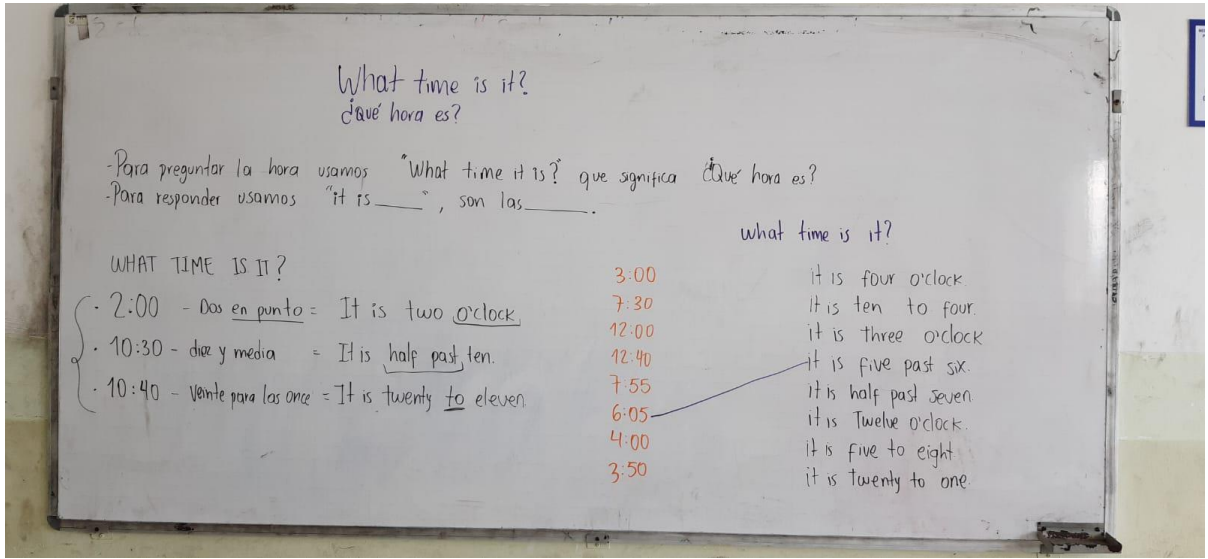 What time is it?
¿Qué hora es?
-Para preguntar la hora usamos "What time it is?" que significa ¿Qué hora es?
-Para responder usamos "it is ____", son las ____.
WHAT TIME IS IT?
· 2:00 - Dos en punto = It is two o'clock.
· 10:30 - diez y media = It is half past ten.
· 10:40 - veinte para las once = It is twenty to eleven.
what time is it?
3:00 it is four o'clock.
7:30 it is ten to four.
12:00 it is three o'clock
12:40 it is five past six.
7:55 it is half past seven.
6:05 it is Twelve o'clock.
4:00 it is five to eight.
3:50 it is Twenty to one.